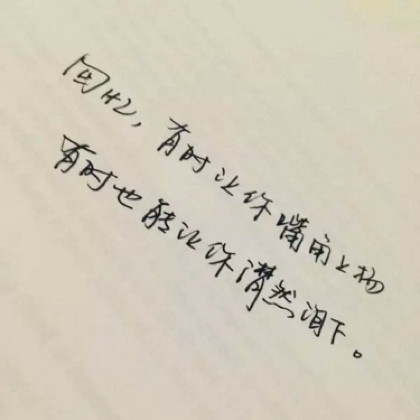 回忆，有时让你嘴角上扬
有时也能让你潸然泪下。